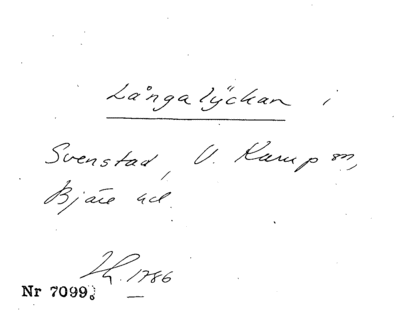 Långalyckan i
Svenstad, V. Karup sn,
Bjäre hd.
1786
Nr 7099.